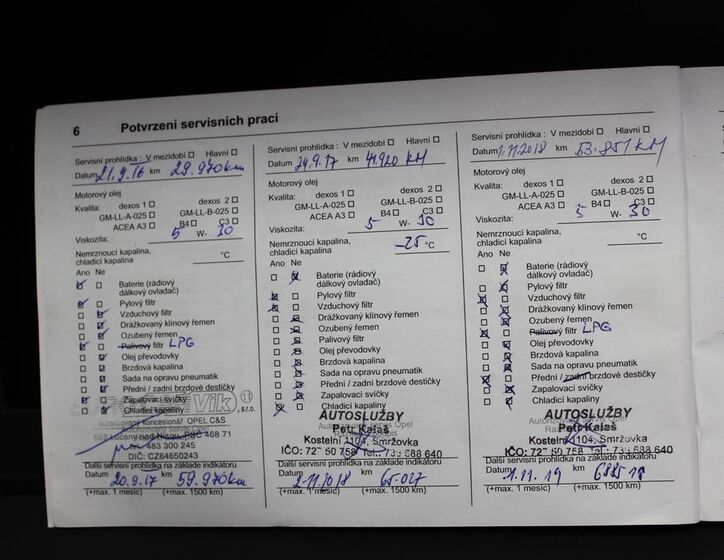 6 Potvrzení servisních prací
Servisní prohlídka : V mezidobí Hlavní
Datum 21.9.16 km 29.970km
Motorový olej
Kvalita: dexos 1 dexos 2
GM-LL-A-025 GM-LL-B-025
ACEA A3 B4 C3
Viskozita: 5 W- 30
Nemrznoucí kapalina,
chladicí kapalina °C
Ano Ne
Baterie (rádiový
dálkový ovladač)
Pylový filtr
Vzduchový filtr
Drážkovaný klínový řemen
Ozubený řemen
Palivový filtr LPG
Olej převodovky
Brzdová kapalina
Sada na opravu pneumatik
Přední / zadní brzdové destičky
Zapalovací svíčky
Chladicí kapaliny
Vik
, s.r.o.
autorizovaný koncesionář OPEL C&S
468 71
483 300 245
DIČ: CZ64650243
Další servisní prohlídka na základě indikátoru
Datum 20.9.17 km 59.970km
(+max. 1 měsíc) (+max. 1500 km)
Servisní prohlídka : V mezidobí Hlavní
Datum 24.9.17 km
Motorový olej
Kvalita: dexos 1 dexos 2
GM-LL-A-025 GM-LL-B-025
ACEA A3 B4 C3
Viskozita: 5 W- 30
Nemrznoucí kapalina,
chladicí kapalina -25 °C
Ano Ne
Baterie (rádiový
dálkový ovladač)
Pylový filtr
Vzduchový filtr
Drážkovaný klínový řemen
Ozubený řemen
Palivový filtr
Olej převodovky
Brzdová kapalina
Sada na opravu pneumatik
Přední / zadní brzdové destičky
Zapalovací svíčky
Chladicí kapaliny
AUTOSLUŽBY
Petr Kalaš
Kostelní 1104, Smržovka
IČO: 72 50 758 Tel.: 688 640
Další servisní prohlídka na základě indikátoru
Datum km
(+max. 1 měsíc) (+max. 1500 km)
Servisní prohlídka : V mezidobí Hlavní
Datum 1.11.2018 km 53.851 KM
Motorový olej
Kvalita: dexos 1 dexos 2
GM-LL-A-025 GM-LL-B-025
ACEA A3 B4 C3
Viskozita: 5 W- 30
Nemrznoucí kapalina,
chladicí kapalina °C
Ano Ne
Baterie (rádiový
dálkový ovladač)
Pylový filtr
Vzduchový filtr
Drážkovaný klínový řemen
Ozubený řemen
Palivový filtr LPG
Olej převodovky
Brzdová kapalina
Sada na opravu pneumatik
Přední / zadní brzdové destičky
Zapalovací svíčky
Chladicí kapaliny
AUTOSLUŽBY
Petr Kalaš
Kostelní 1104, Smržovka
IČO: 72 50 758 Tel.: 688 640
Další servisní prohlídka na základě indikátoru
Datum 1.11.19 km
(+max. 1 měsíc) (+max. 1500 km)